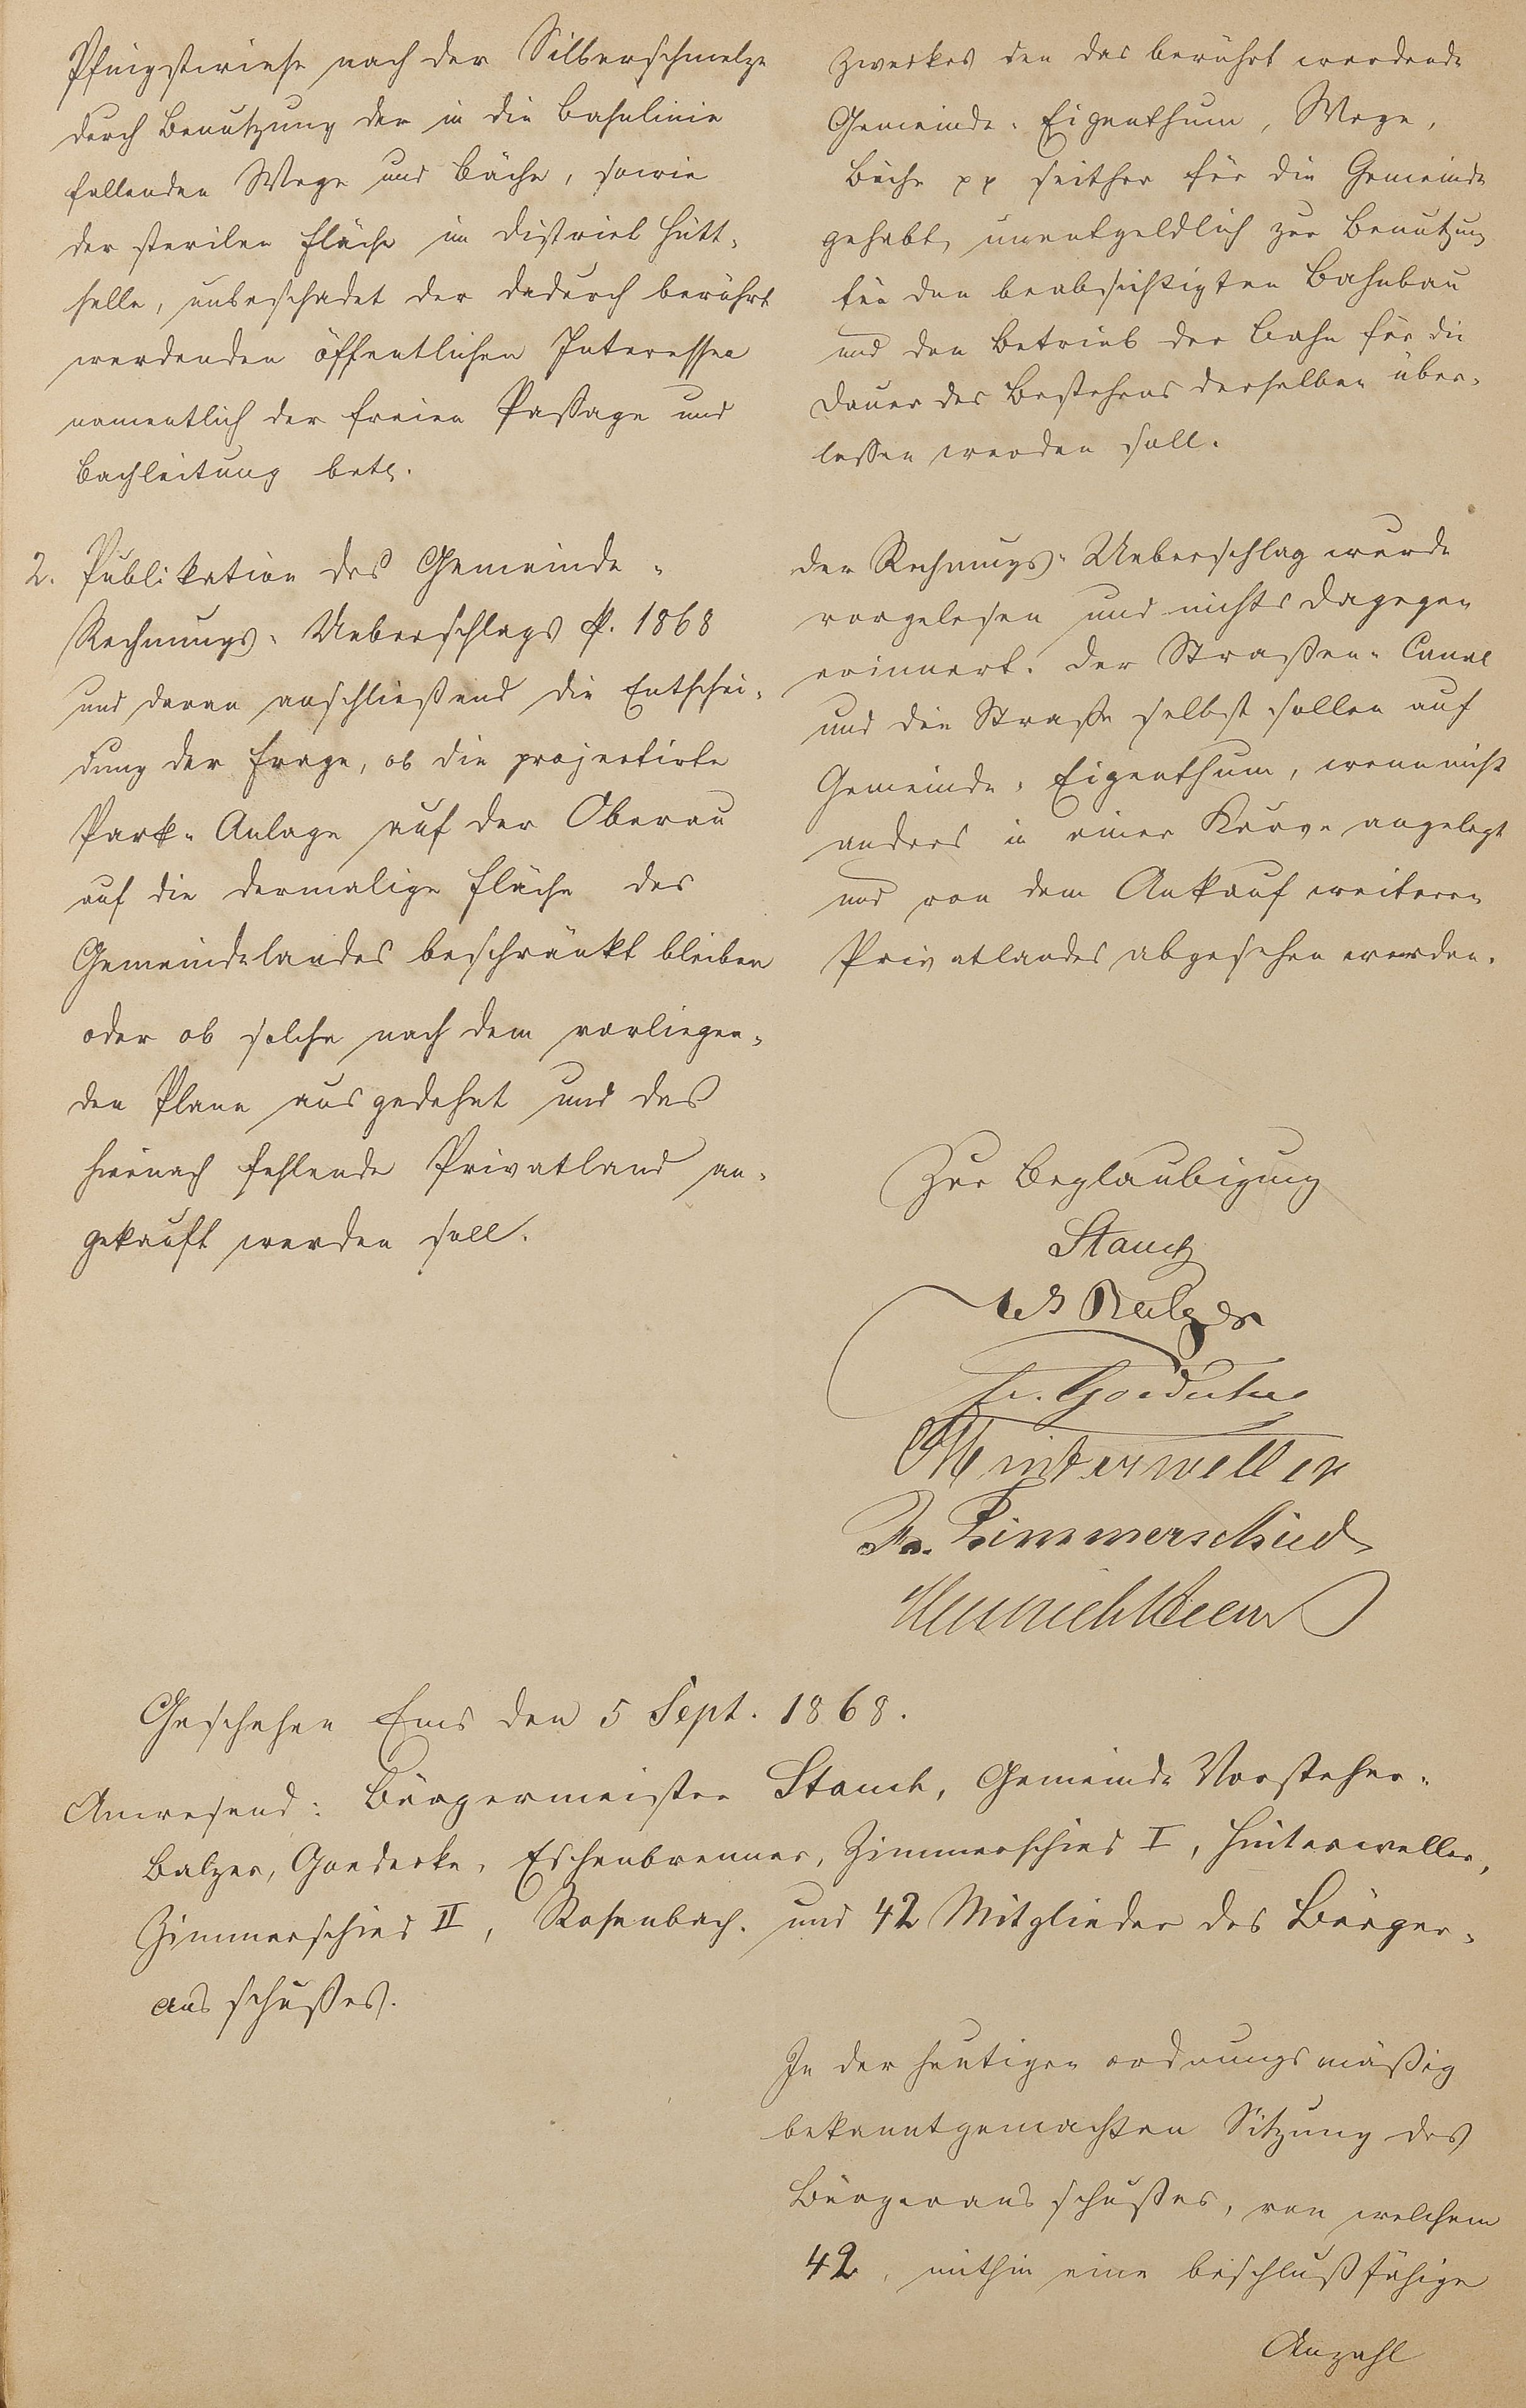 Pfingstwiese nach der Silberschmelze
durch Benutzung der in die Bahnlinie
fallenden Wege und Bäche, sowie
der sterilen Fläche im District Hütt-
helle, unbeschadet der dadurch berührt
werdenden öffentlichen Interessen
namentlich der freien Paßage und
Bachleitung betr.
2. Publikation des Gemeinde-
Rechnungs-Ueberschlags p. 1868
und daran anschließend die Entschei-
dung der Frage, ob die projectirte
Park-Anlage auf der Oberau
auf die dermalige Fläche des
Gemeindelandes beschränkt bleiben
oder ob solche nach dem vorliegen-
den Plane ausgedehnt und das
hiernach fehlende Privatland an-
gekauft werden soll.
Zweckes den das berührt werdende
Gemeinde-Eigenthum, Wege,
Bäche pp seither für die Gemeinde
gehabt, unentgeldlich zur Benutzung
für den beabsichtigten Bahnbau
und den Betrieb der Bahn für die
Dauer des Bestehens derselben über-
lassen werden soll.
Der Rechnungs-Ueberschlag wurde
vorgelesen und nichts dagegen
erinnert. Der Straßen-Canal
und die Straße selbst sollen auf
Gemeinde-Eigenthum, wenn nicht
anders in einer Kurve angelegt
und von dem Ankauf weiteren
Privatlandes abgesehen werden.
Zur Beglaubigung
Stauch
Balzer
Fr. Goedecke
Hinterweller
Fr. Zimmerschied
Heinrich
Geschehen Ems den 5 Sept. 1868.
Anwesend: Bürgermeister Stauch, Gemeinde Vorsteher-
Balzer, Goedecke, Eschenbrenner, Zimmerschied I, Hinterweller,
Zimmerschied II, Rosenbach. und 42 Mitglieder des Bürger-
ausschußes.
In der heutigen ordnungsmäßig
bekanntgemachten Sitzung des
Bürgerausschußes, von welchem
42, mithin eine beschlußfähige
Anzahl